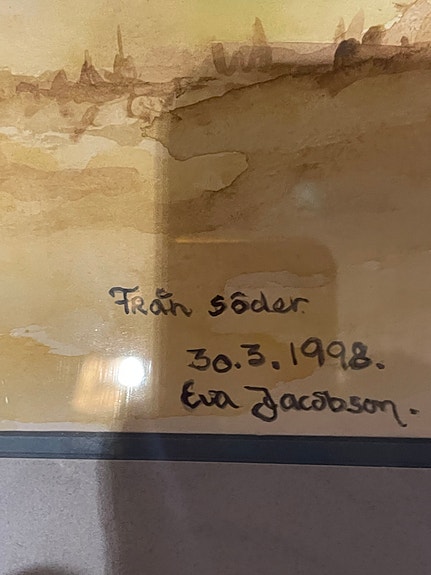 Från söder.
30.3.1998.
Eva Jacobson.